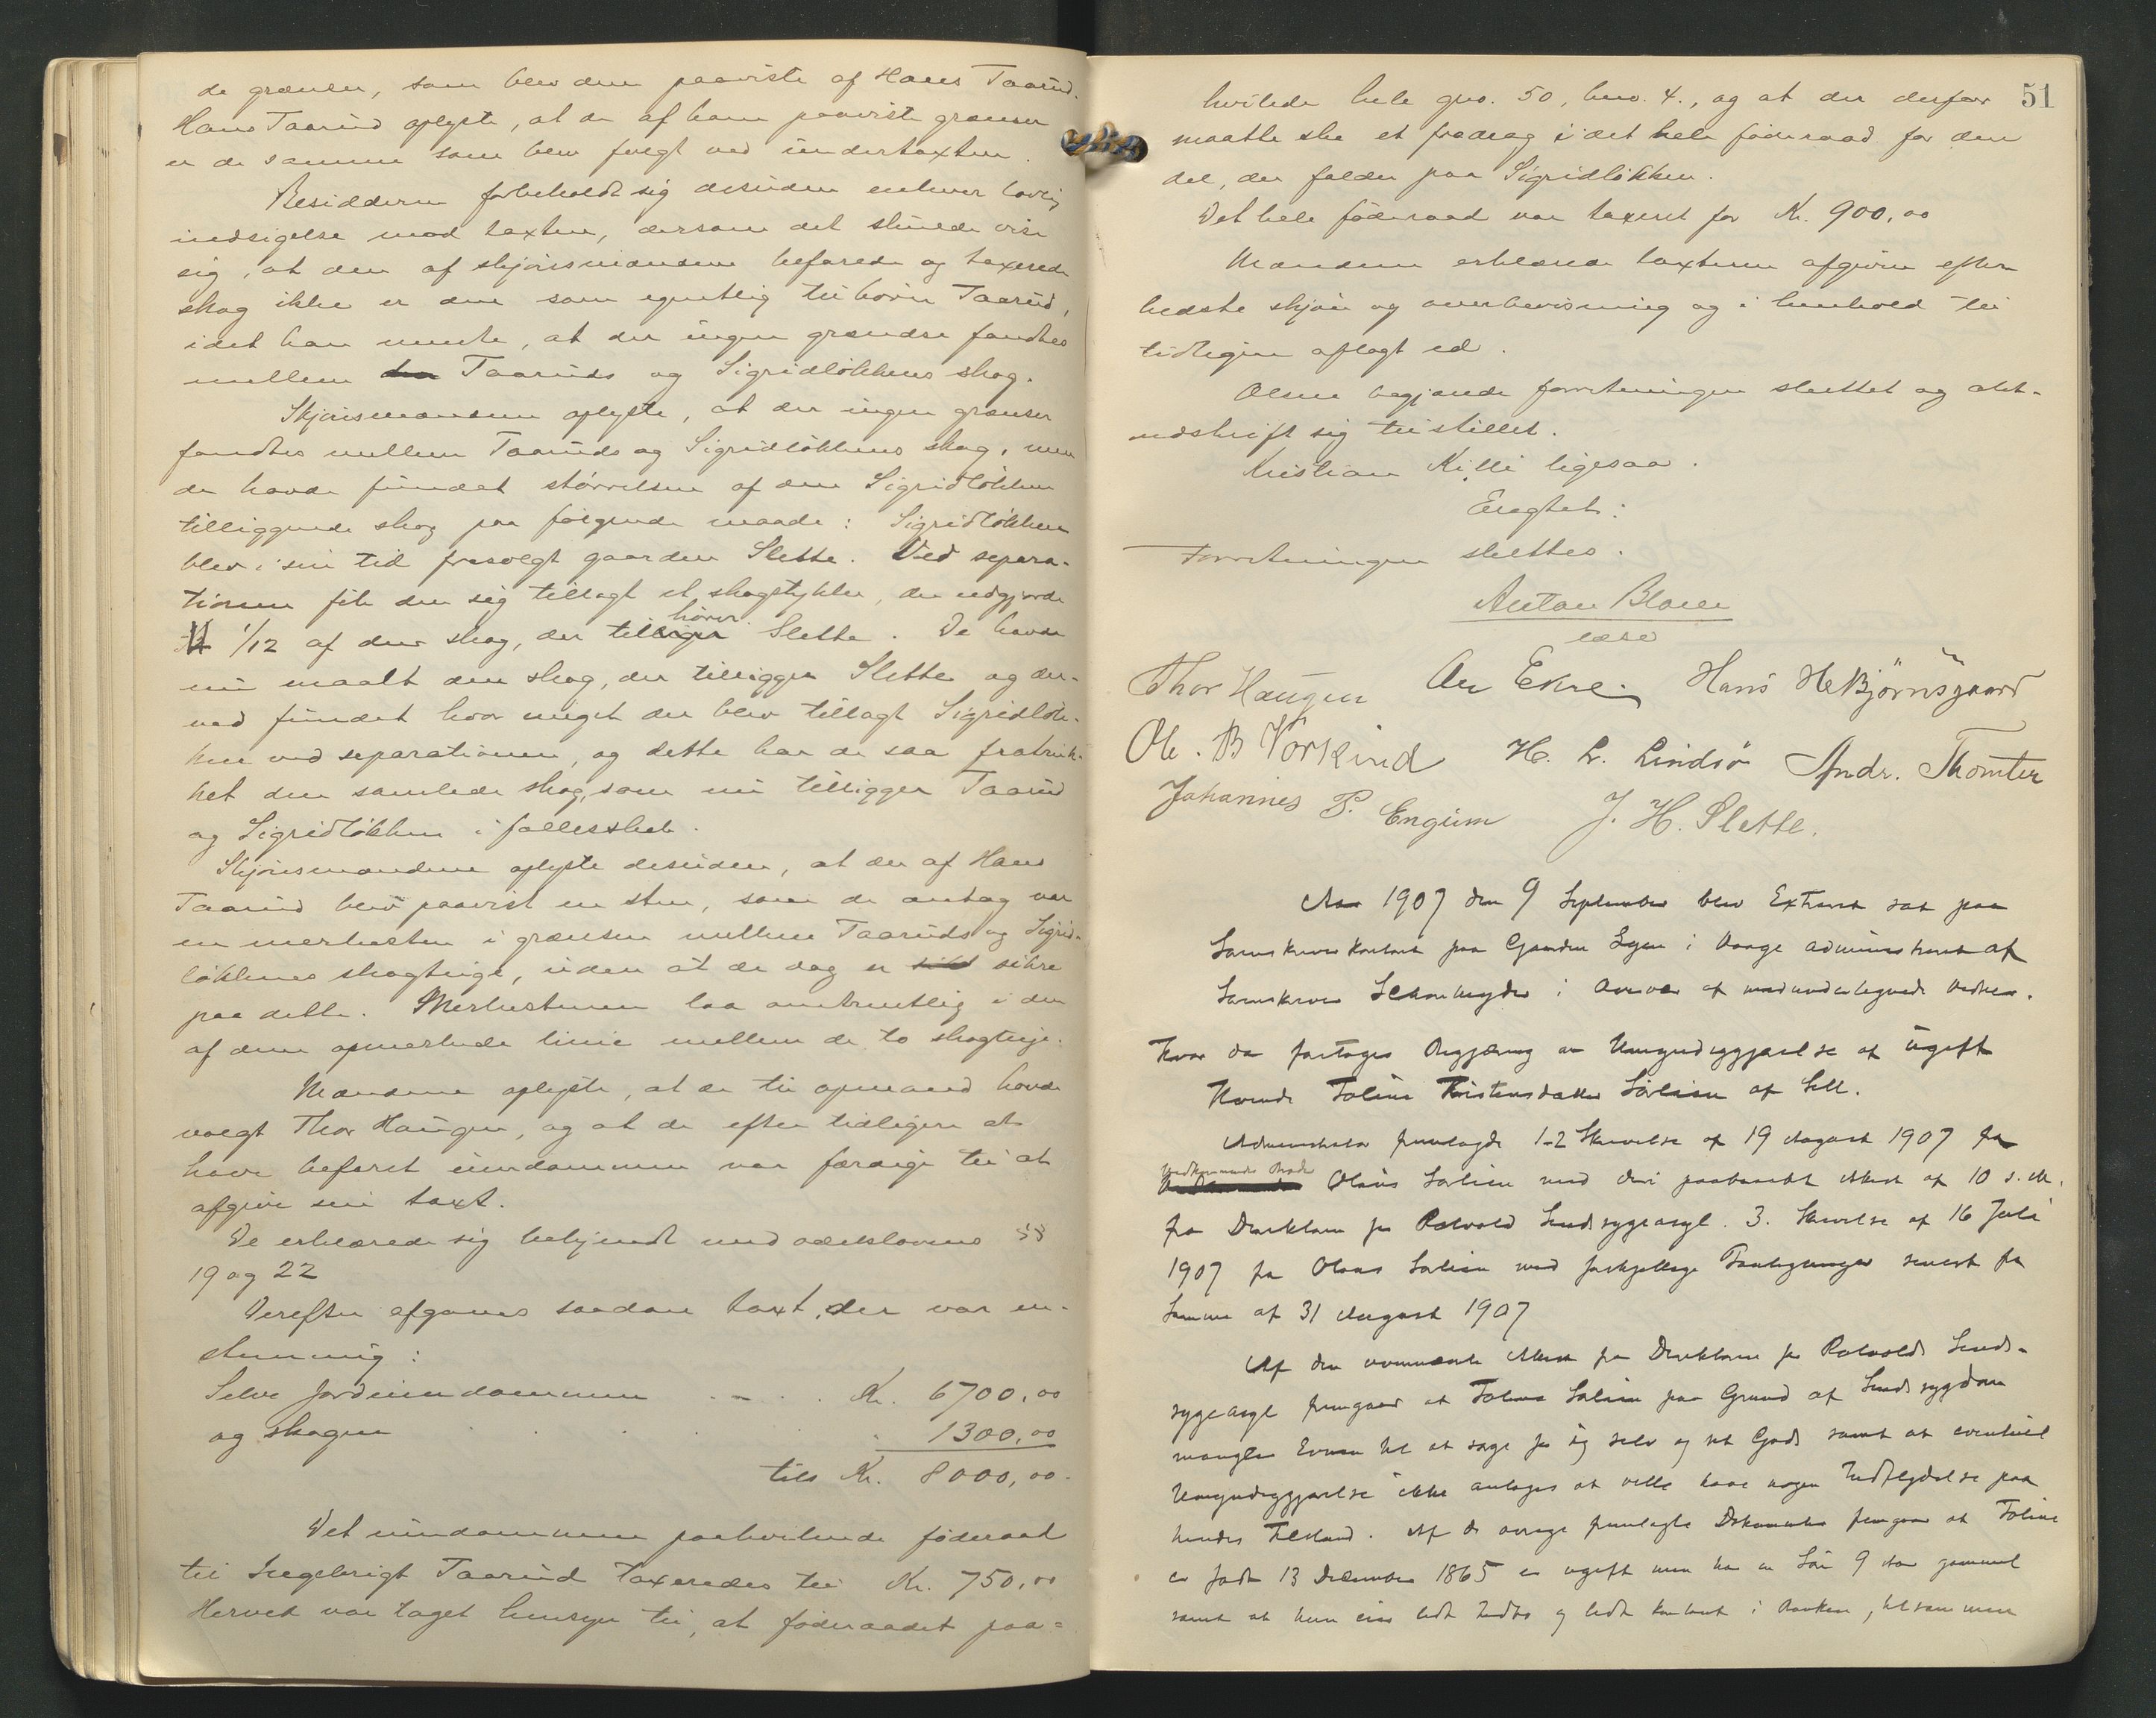 de grænser, som blev dem paaviste af Hans Taarud.
Hans Taarud oplyste, at de af ham paaviste grænser
er de samme som blev fulgt ved undertaxten.
Residderen forbeholdt sig desuden enhver lovlig
indsigelse mod taxten, dersom det skulde vise
sig, at den af skjønsmændene befarede og taxerede
skog ikke er den som egentlig tilhører Taarud,
idet han mente, at der ingen grændse fandtes
mellem Taaruds og Sigridløkkens skog.
Skjønsmændene oplyste, at der ingen grænser
fandtes mellem Taaruds og Sigridløkkens skog, men
de havde fundet størrelsen af den Sigridløkken
tilliggende skog paa følgende maade: Sigridløkken
blev i sin tid frasolgt gaarden Slette. Ved separa-
tionen fik den sig tillagt et skogstykke, der udgjorde
1/12 af den skog, der tilhører Slette. De havde
nu maalt den skog, der tilligger Slette og der-
ved fundet hvor meget der blev tillagt Sigridløk-
ken ved separationen, og dette har de saa fratruk-
ket den samlede skog, som nu tilligger Taarud
og Sigridløkken i fællesskab.
Skjønsmændene oplyste desuden, at der af Hans
Taarud blev paavist en sten, som de antog var
en merkesten i grænsen mellem Taaruds og Sigrid-
løkkens skogteige, uden at de dog er sikre
paa dette. Merkestenen laa omtrentlig i den
af dem opmerkede linie mellem de to skogteige.
Mændene oplyste, at de til opmand havde
valgt Thor Haugen, og at de efter tidligere at
have befaret eiendommen var færdige til at
afgive sin taxt.
De erklærede sig bekjendt med odelslovens §§
19 og 22
Derefter afgaves saadan taxt, der var en-
stemmig:
Selve jordeiendommen - . . Kr. 6700,00
og skogen . . . . 1300,00
tils Kr. 8000,00.
Det eiendommen paahvilende føderaad
til Ingebrigt Taarud taxeredes til Kr. 750,00
Herved var taget hensyn til, at føderaadet paa-
51
hvilede hele gno. 50, bno. 4., og at der derfor
maatte ske et fradrag i det hele føderaad for den
del, der falder paa Sigridløkken.
Det hele føderaad var taxeret for Kr. 900,00
Mændene erklærede taxterne afgivne efter
bedste skjøn og overbevisning og i henhold til
tidligere aflagt ed.
Olsen begjærede forretningen sluttet og akt-
udskrift sig tilstillet.
Kristian Killi ligesaa.
Eragtet:
Forretningen sluttes.
Anton Blom
Thor Haugen An Ekre Hans H Bjørnsgaard
Ole. B Vorkind H. L. Lindsø Andr. Thomter
Johannes P. Engum J. H. Slette.
Aar 1907 den 9 September blev Extraret sat paa
Sorenskriverkontoret paa Gaarden Lyen i Vaage administreret af
Sorenskriver i Overvær af medundertegnede Vidner.
Hvor da foretoges Begjæring om Umyndiggjørelse af ugift
Kvinde Toline Kristensdatter Sørlien af Sell.
Administrator fremlagde 1-2 Skrivelse af 19 August 1907 fra
vedkommendes Broder Olaus Sørlien med deri paaberaabt Attest af 10 s. M.
fra Direktøren for Rotvold Sindsygeasyl. 3. Skrivelse af 16 Juli
1907 fra Olaus Sørlien med forskjellige Paategninger senest fra
Samme af 31 August 1907
Af den ovennævnte Attest fra Direktøren for Rotvolds Sinds-
sygeasyl fremgaar at Toline Sørlien paa Grund af Sindssygdom
mangler Evnen til at sørge for sig selv og sit Gods samt at eventuel
Umyndiggjørelse ikke antages at ville have nogen Indflydelse paa
hendes Tilstand. Af de øvrige fremlagte Dokumenter fremgaar at Toline
er født 13 December 1865 er ugift men har en Søn 9 Aar gammel
samt at hun eier lidt Indbo og lidt kontant i Banken, tilsammen